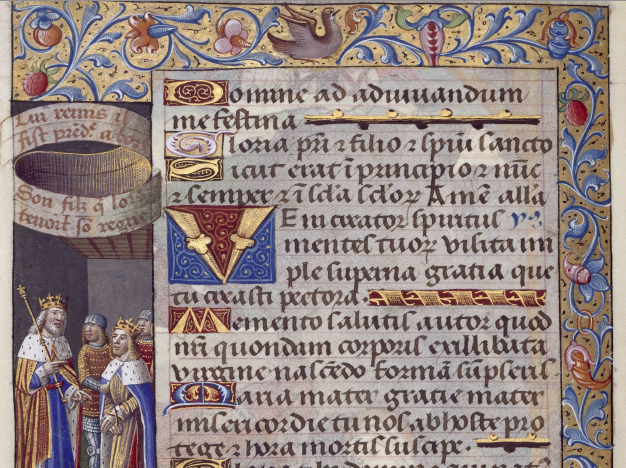 Lui remis il
fist prẽdᵉ a
Son filz q̃ lo
tenoit sõ
Domine ad adiuuandum
me festina
Gloria pr̃i ⁊ filio ⁊ sp̃iu sancto
Sicut erat ĩ principio ⁊ nũc
⁊ semper ⁊ ĩ sc̃la sc̃loꝝ Amẽ alla
Veni creator spiritus yᵒ
mentes tuoꝝ visita im
ple superna gratia que
tu creasti pectora.
Memento salutis autor quod
nr̃i quondam corporis ex illibata
virgine nascẽdo formã sũpseris.
Maria mater gratie mater
misericordie tu nos ab hoste pro
tege ⁊ hora mortis suscipe.